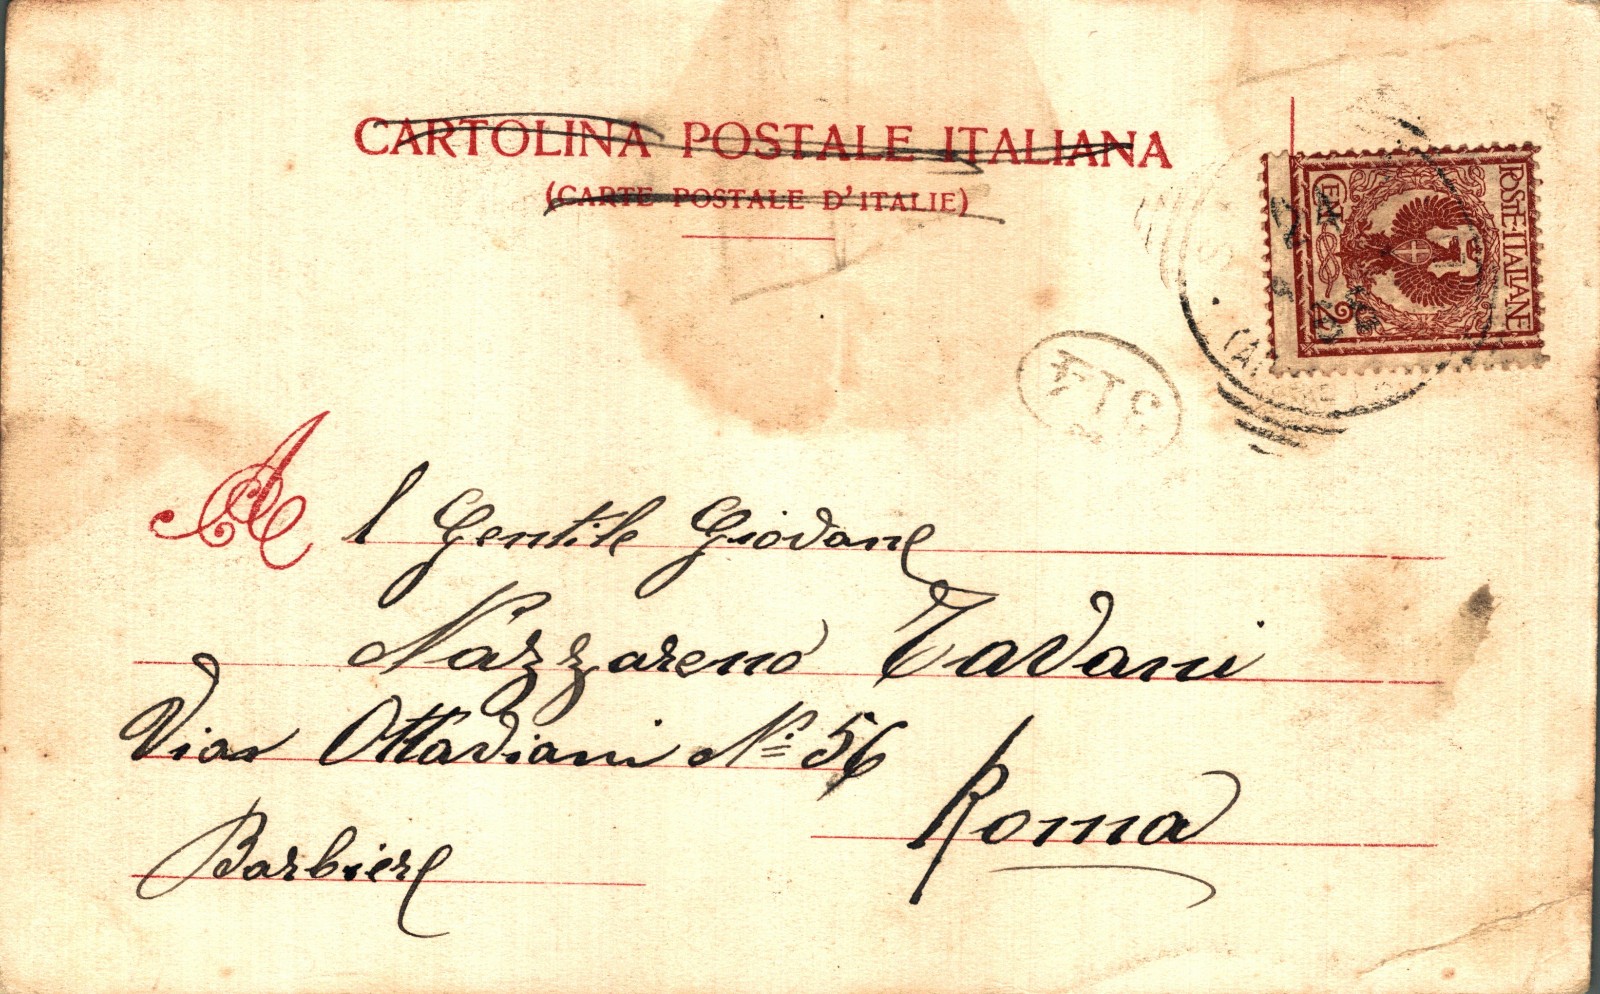 CARTOLINA POSTALE ITALIANA
(CARTE POSTALE D'ITALIE)
POSTE ITALIANE
CENT 2
A l Gentile Giovane
Nazzareno Tavani
Via Ottaviani No 56
Roma
Barbiere